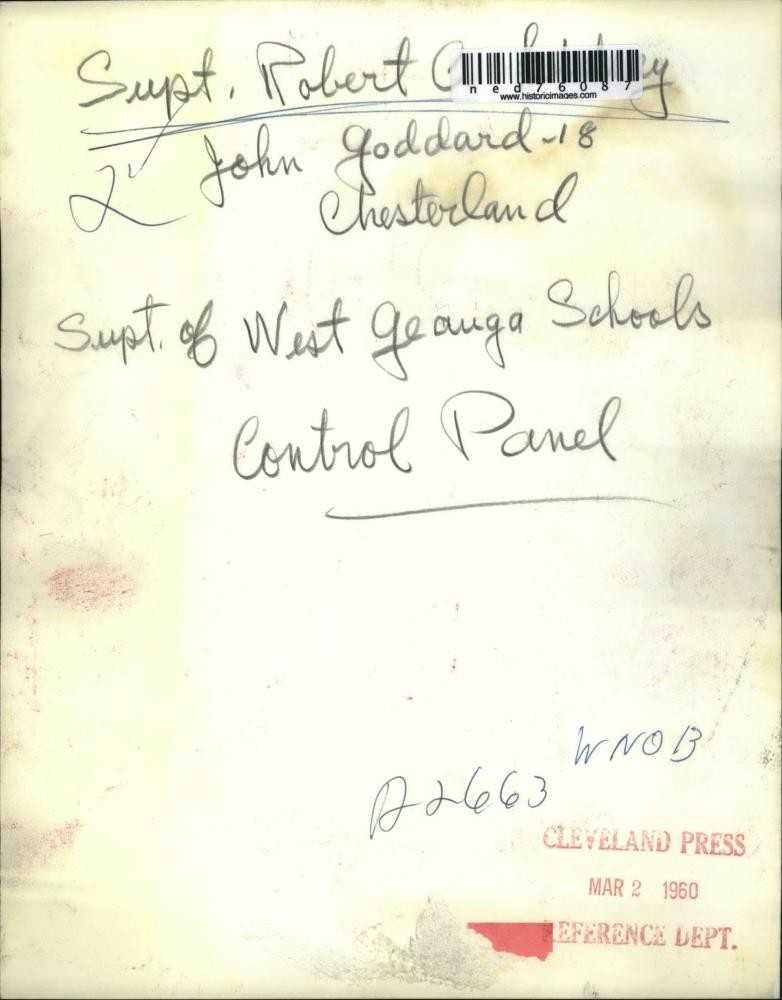 Supt. Robert
ned76087
www.historicimages.com
John Goddard-18
2
Chesterland
Supt. of West Geauga Schools
Control Panel
WNOB
A2663
CLEVELAND PRESS
MAR 2 1960
REFERENCE DEPT.